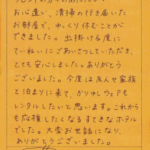 お心遣い、清掃の行き届いた
お部屋で、ゆっくり休むことが
できました。出掛ける度に
ていねいにごあいさつしていただき、
とても安心しました。ありがとう
ございました。今度は主人や家族
と泊まりに来て、かりゆしウェアも
レンタルしたいと思います。これから
も応援したくなるすてきなホテル
でした。大変お世話になり、
ありがとうございました。